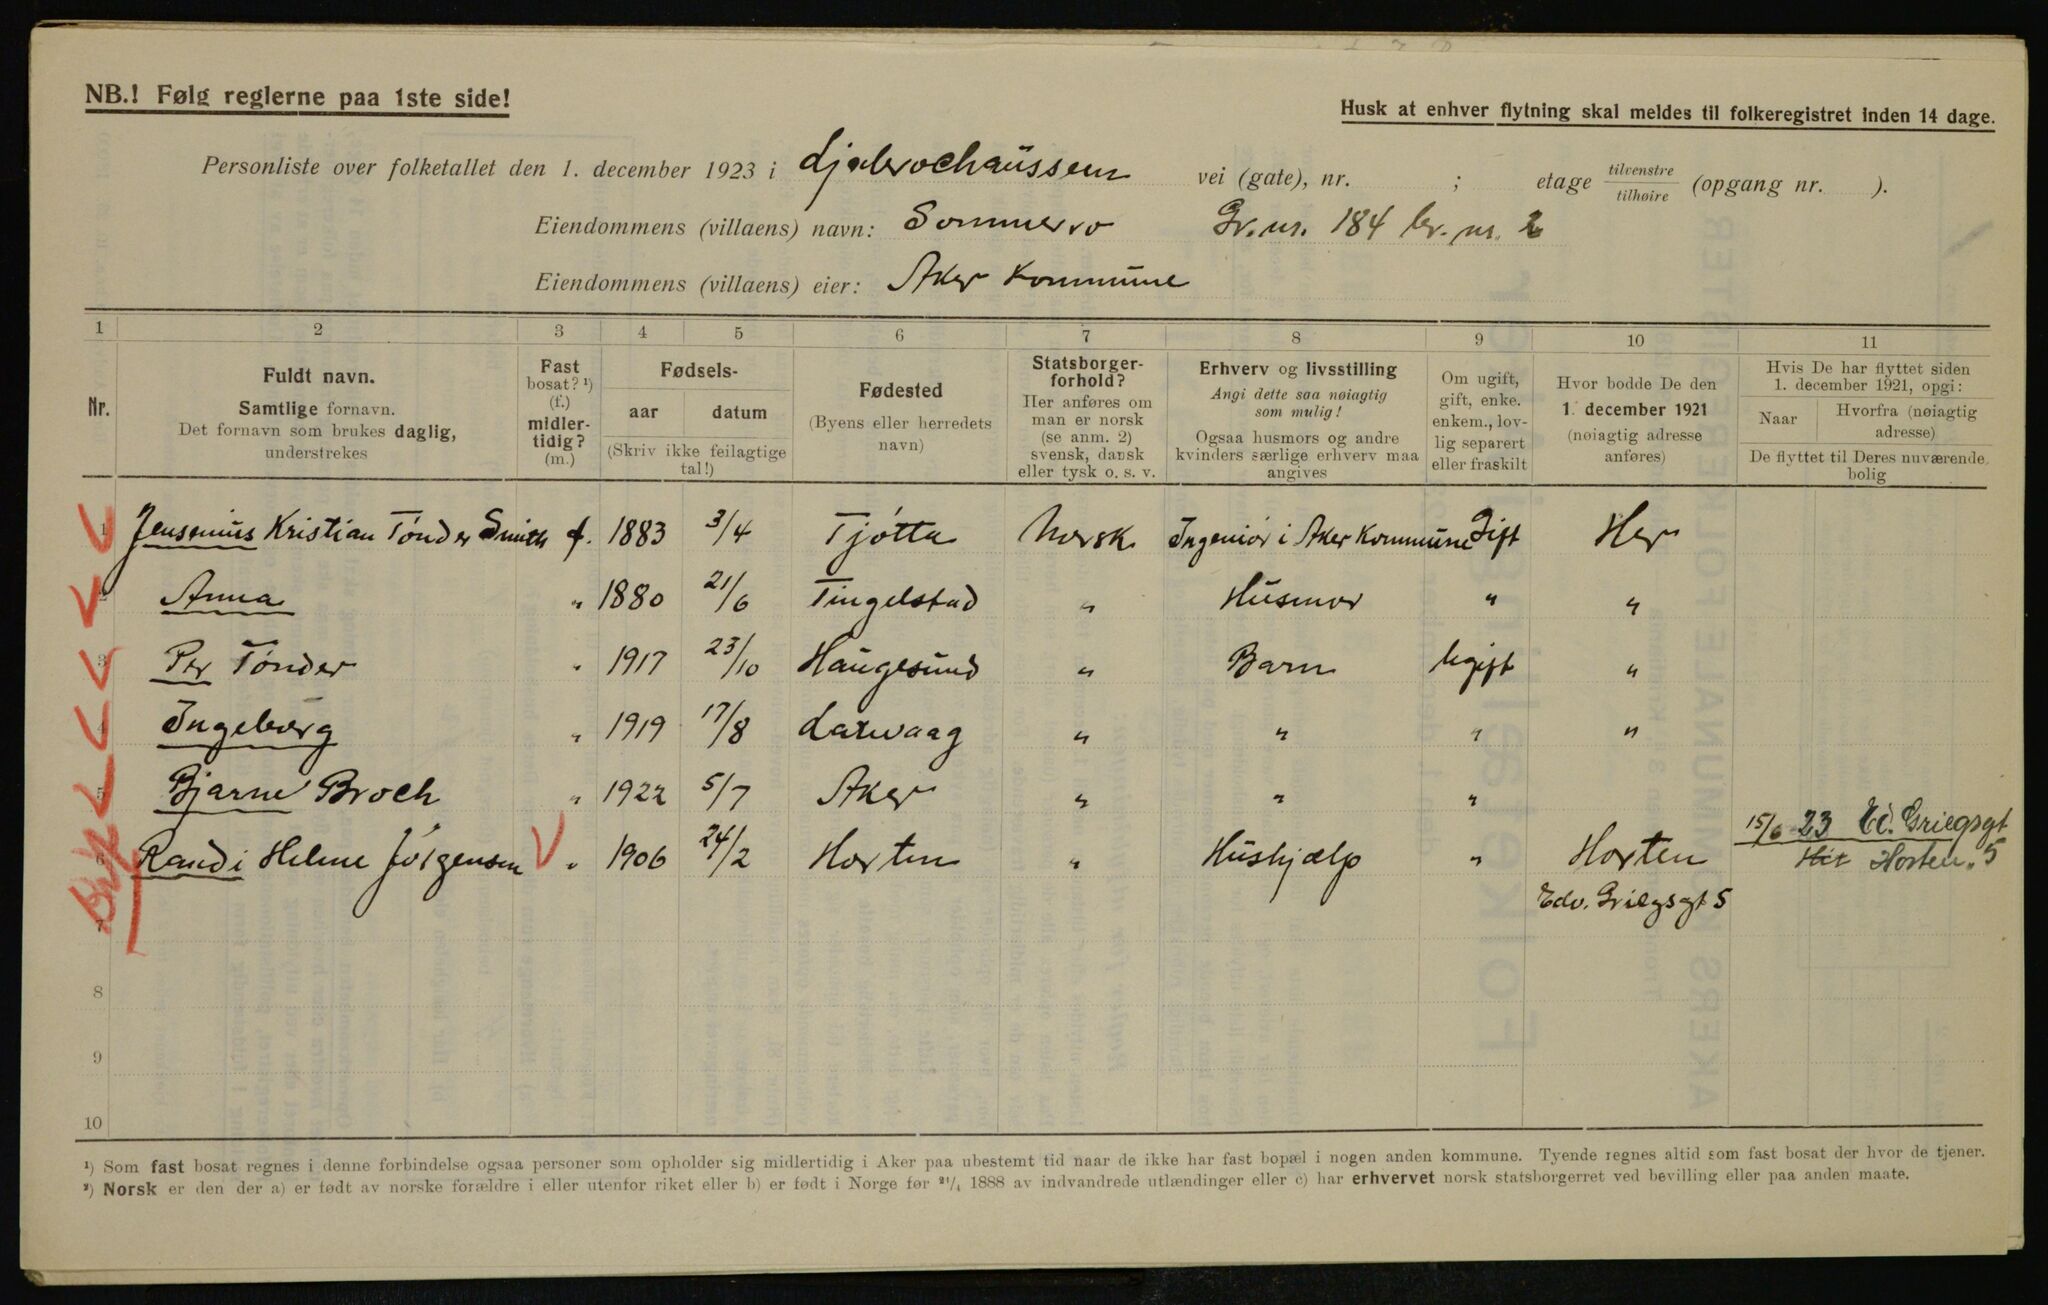 NB.! Følg reglerne paa 1ste side!
Husk at enhver flytning skal meldes til folkeregistret inden 14 dage.
Personliste over folketallet den 1. december 1923 i Ljabrochausseen vei (gate), nr. ; etage tilvenstre / tilhøire (opgang nr. ).
Eiendommens (villaens) navn: Sommerro Gr. nr. 184 br. nr. 2
Eiendommens (villaens) eier: Aker Kommune
1 2 3 4 5 6 7 8 9 10 11
Nr.
Fuldt navn.
Samtlige fornavn.
Det fornavn som brukes daglig,
understrekes
Fast
bosat? ¹)
(f.)
midler-
tidig?
(m.)
Fødsels-
aar datum
(Skriv ikke feilagtige
tal!)
Fødested
(Byens eller herredets
navn)
Statsborger-
forhold?
Her anføres om
man er norsk
(se anm. 2)
svensk, dansk
eller tysk o. s. v.
Erhverv og livsstilling
Angi dette saa nøiagtig
som mulig!
Ogsaa husmors og andre
kvinders særlige erhverv maa
angives
Om ugift,
gift, enke.
enkem., lov-
lig separert
eller fraskilt
Hvor bodde De den
1. december 1921
(nøiagtig adresse
anføres)
Hvis De har flyttet siden
1. december 1921, opgi:
Naar Hvorfra (nøiagtig
adresse)
De flyttet til Deres nuværende
bolig
1 Jensenius Kristian Tønder Smith f. 1883 3/4 Tjøtta Norsk Ingeniør i Aker Kommune Gift Her
2 Anna " 1880 21/6 Tingelstad " Husmor " "
3 Per Tønder " 1917 23/10 Haugesund " Barn Ugift "
4 Ingeborg " 1919 17/8 Larvaag " " " "
5 Bjarne Broch " 1922 5/7 Aker " " "
6 Randi Helene Jørgensen " 1906 24/2 Horten " Hushjælp " Horten 15/6 23 Ed. Griegsgt
Horten 5
7 Edv. Griegsgt 5
8
9
10
¹) Som fast bosat regnes i denne forbindelse ogsaa personer som opholder sig midlertidig i Aker paa ubestemt tid naar de ikke har fast bopæl i nogen anden kommune. Tyende regnes altid som fast bosat der hvor de tjener.
²) Norsk er den der a) er født av norske forældre i eller utenfor riket eller b) er født i Norge før ²¹/₄ 1888 av indvandrede utlændinger eller c) har erhvervet norsk statsborgerret ved bevilling eller paa anden maate.